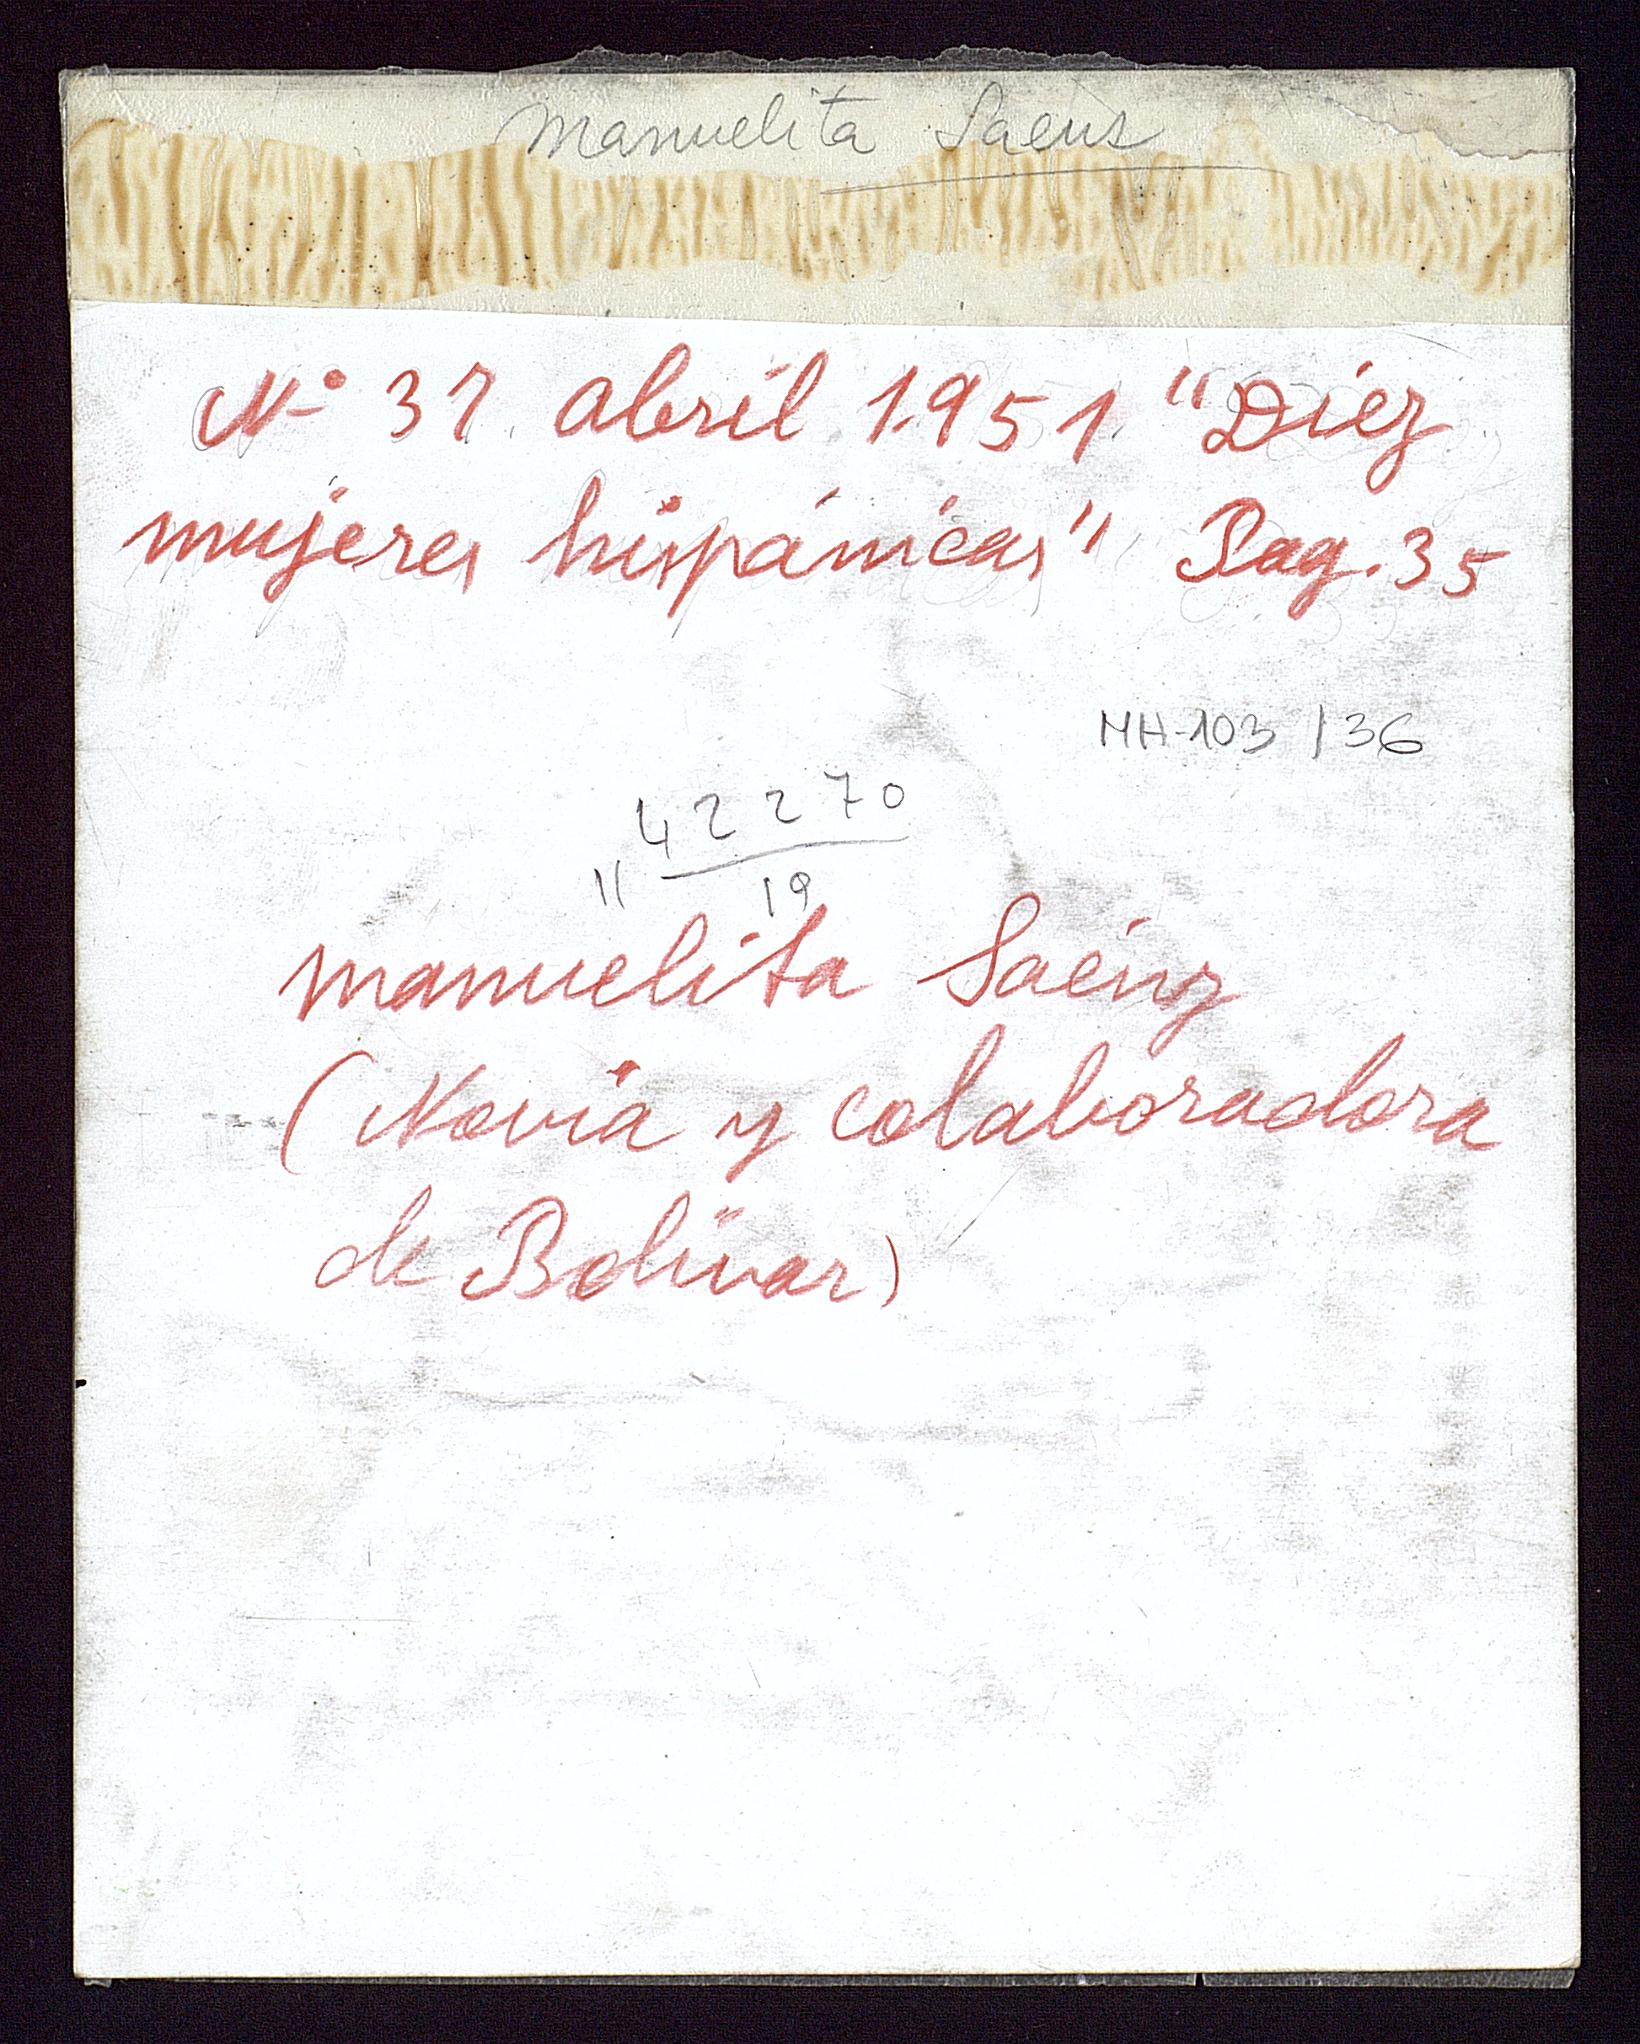 Manuelita Saenz
Nº 37 abril 1.951. "Diez
mujeres hispánicas" Pag. 35
MH-103 / 36
42270
11 19
Manuelita Saénz
(Novia y colaboradora
de Bolivar)